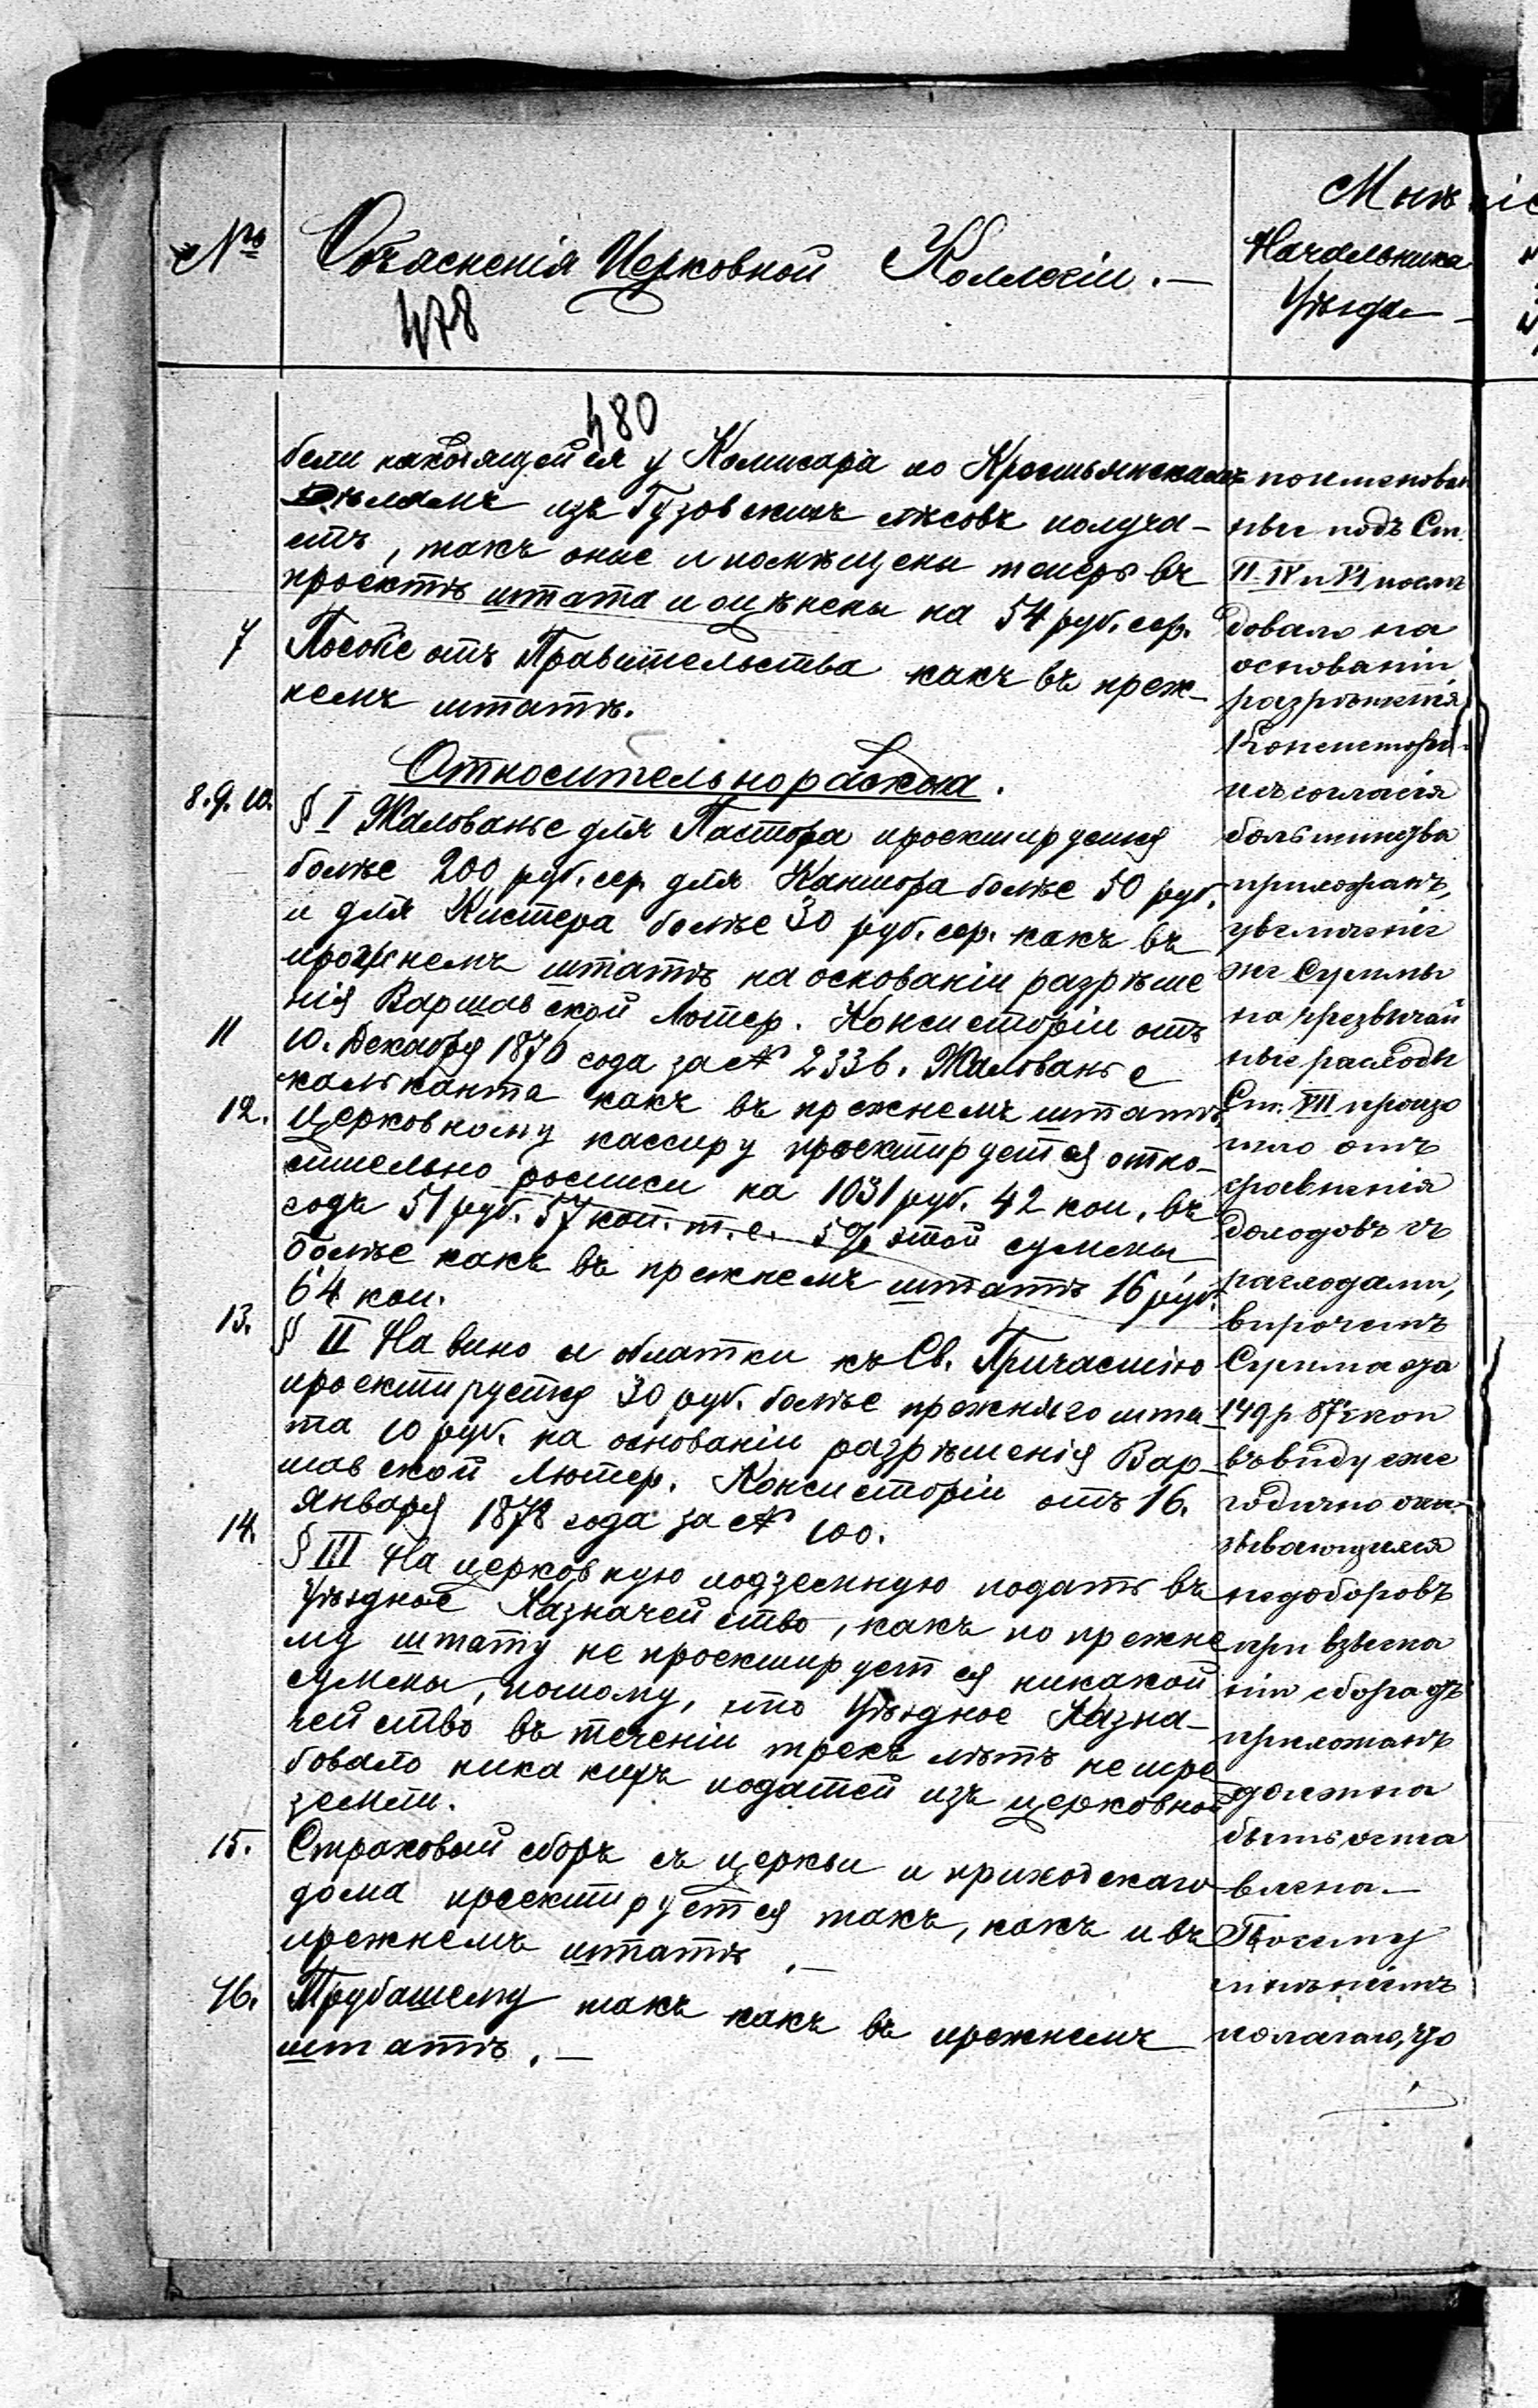 №
Объясненія Церковной Коллегіи.—
478
Мнѣніе
Начальника
Уѣзда
480
бели находящейся у Комисара по Крестьянскимъ
Дѣламъ изъ Гузовскихъ лѣсовъ получа-
етъ, такъ оные и помѣщены теперь въ
проектѣ штата и оцѣнены на 54 руб. сер.
7 Пособіе отъ Правительства какъ въ преж-
немъ штатѣ.
Относительно расхода.
8. 9. 10. § I Жалованье для Пастора проектируется
болѣе 200 руб. сер. для Кантора болѣе 50 руб.
и для Кистера болѣе 30 руб. сер. какъ въ
прежнемъ штатѣ на основаніи разрѣше
нія Варшавской Лютер. Консисторіи отъ
11 10. Декабря 1876 года за № 2336. Жалованье
кальканта какъ въ прежнемъ штатѣ.
12. Церковному кассиру проектируется отно-
сительно росписи на 1031 руб. 42 коп. въ
годъ 51 руб. 57 коп. т. е. 5% этой суммы
болѣе какъ въ прежнемъ штатѣ 16 руб.
64 коп.
13. § II На вино и облатки къ Св. Причастію
проектируется 30 руб. болѣе прежняго шта
та 10 руб. на основаніи разрѣшенія Вар-
шавской Лютер. Консисторіи отъ 16.
Января 1878 года за № 100.
14. § III На церковную подземную подать въ
Уѣздное Казначейство, какъ по прежне
му штату не проектируется никакой
суммы, потому, что Уѣздное Казна-
чейство въ теченіи трехъ лѣтъ не тре
бовало никакихъ податей изъ церковной
земли.
15. Страховый сборъ съ церкви и приходскаго
дома проектируется такъ, какъ и въ
прежнемъ штатѣ.—
16. Трубашему такъ какъ въ прежнемъ
штатѣ.—
поименован
ные подъ Ст.
II. IV и VI послѣ
довало на
основаніи
разрѣшенія
Консисторіи
и съ согласія
большинства
прихожанъ,
увеличеніе
же Суммы
на чрезвычай
ные расходы
Ст. VII произо
шло отъ
сравненія
доходовъ съ
расходами,
впрочемъ
Сумма эта
149 р 87½ коп
въ виду еже
годично ока-
зывающихся
недоборовъ
при взыска
ніи сбора съ
прихожанъ
должна
быть оста
влена.—
Посему
мнѣніемъ
полагаю, что